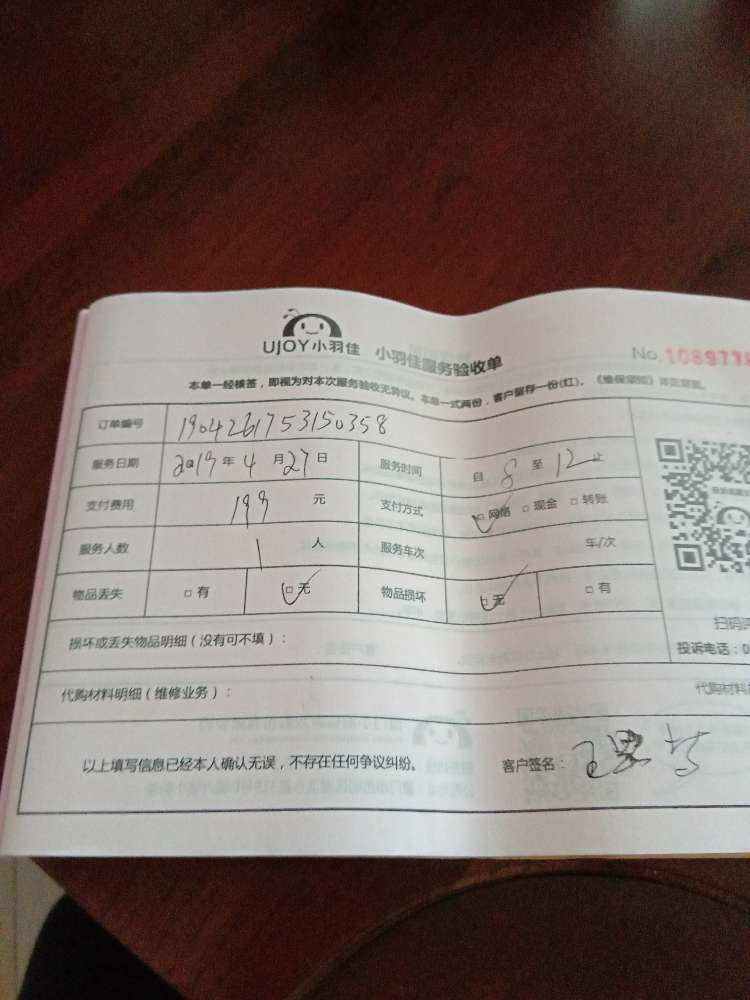 UJOY小羽佳 小羽佳服务验收单 No.1089776
本单一经横签,即视为对本次服务验收无异议。本单一式两份,客户留存一份(红)。《维保须知》详见背面。
订单编号 1904261753150358
服务日期 2019年4月27日 服务时间 自8至12止
支付费用 199元 支付方式 □网络 □现金 □转账
服务人数 1人 服务车次 车/次
物品丢失 □有 □无 物品损坏 □无 □有
扫码
损坏或丢失物品明细(没有可不填): 投诉电话:0
代购材料明细(维修业务): 代购材料
以上填写信息已经本人确认无误,不存在任何争议纠纷。 客户签名: